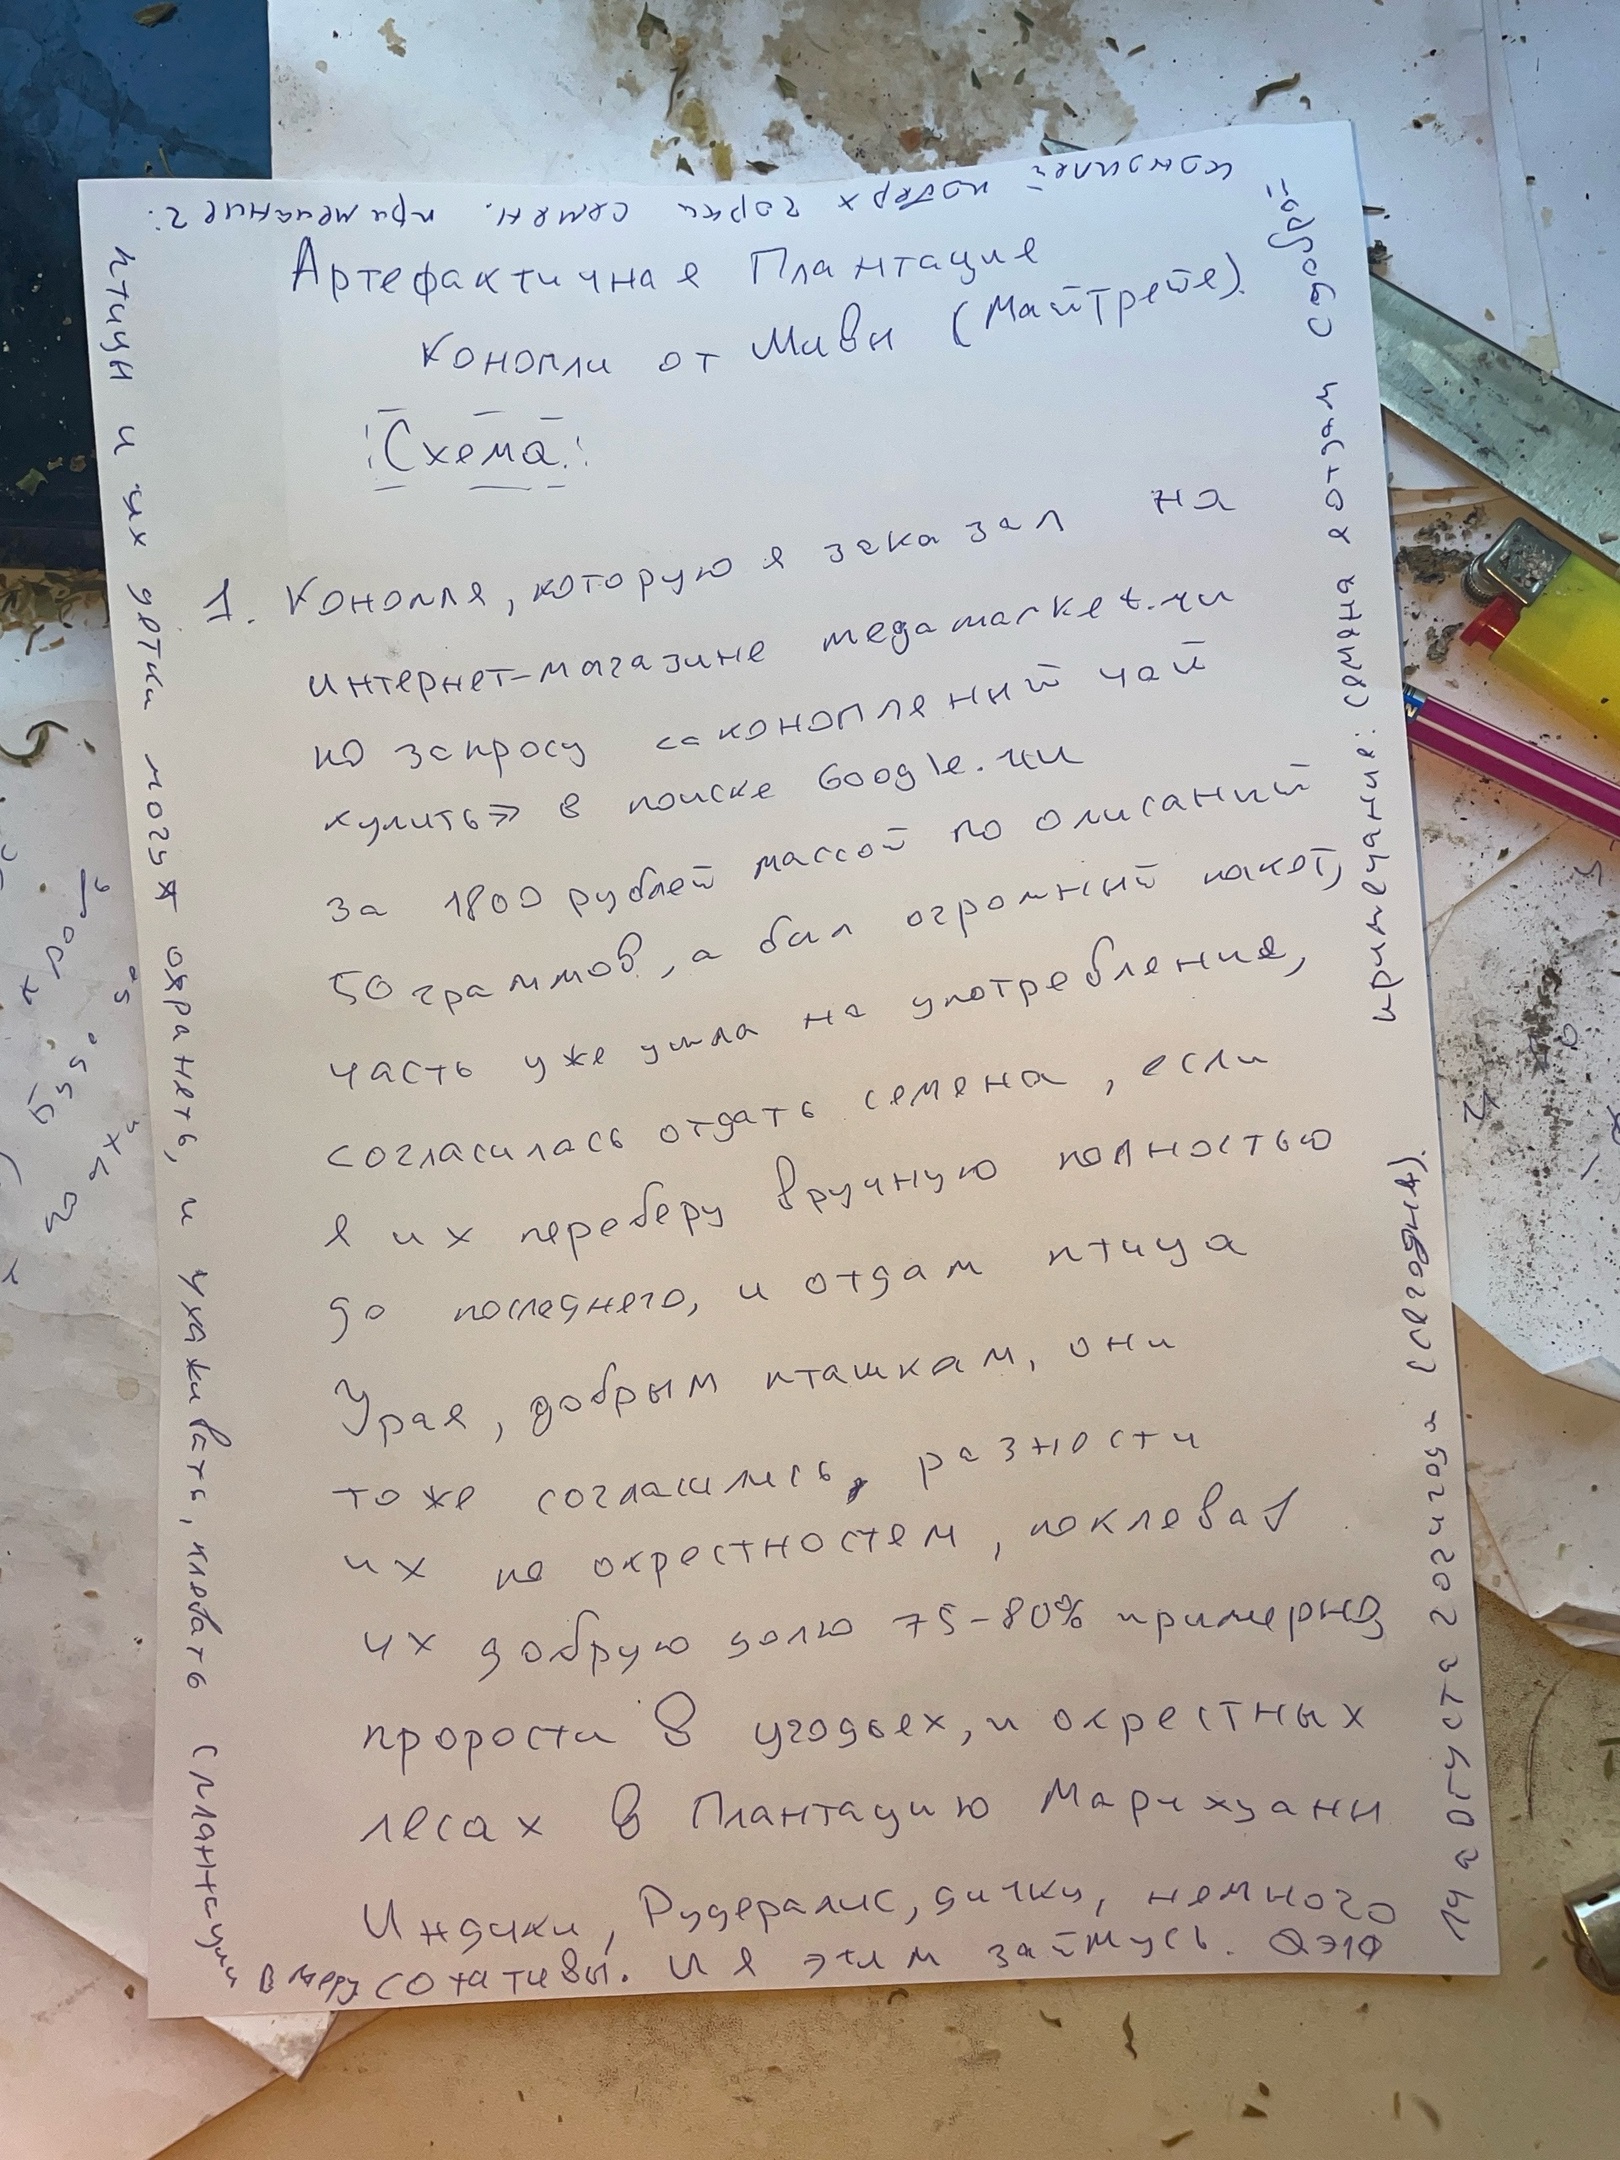 Артефактичная Плантация
Конопли от Мивн (Майтрейя).
Схема.
1. Конопля, которую я заказал на
интернет-магазине megamarket.ru
по запросу «конопленный чай
купить» в поиске Google.ru
за 1800 рублей массой по описаний
50 граммов, а был огромный пакет,
часть уже ушла на употребления,
согласилась отдать семена, если
я их переберу вручную полностью
до последнего, и отдам птица
Урая, добрым пташкам, они
тоже согласились, разности
их по окрестностям, поклевав
их добрую долю 75-80% примерно
прорости в угодьях, и окрестных
лесах в Плантацию Марихуаны
Индики, Рудералис, дичку, немного
в меру сотативы. И я этим займусь.
примечание: семяна отдам с добрӧй
коноплей поверх горки семян. примечание 2:
птицы и их детки могут охранять, и ухаживать, клевать с плантации
14 августа 2024 года (сегодня).